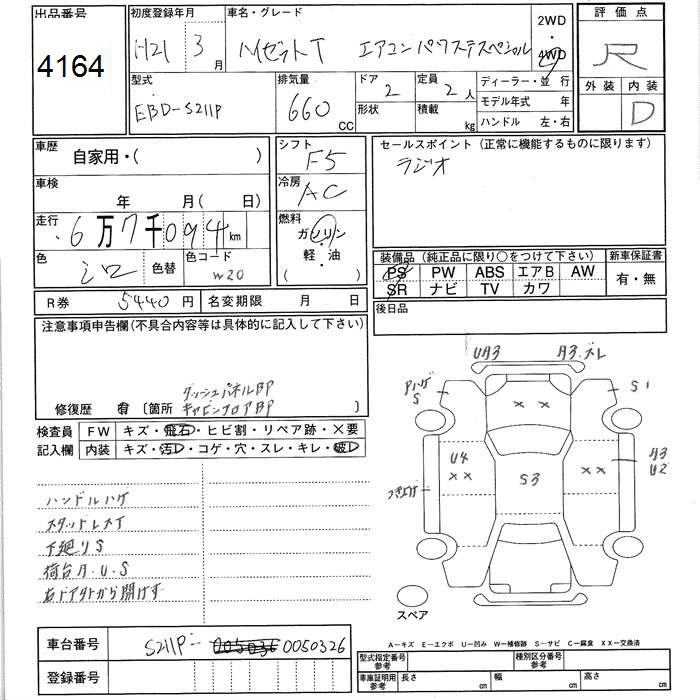 出品番号
4164
初度登録年月
H21年 3月
車名・グレード
ハイゼットT エアコン パワステスペシャル
2WD
・
4WD
評価点
R
外装 内装
D
型式
EBD-S211P
排気量
660 CC
ドア 2
形状
定員 2人
積載 kg
ディーラー・並行
モデル年式 年
ハンドル 左・右
車歴
自家用・( )
シフト
F5
セールスポイント (正常に機能するものに限ります)
ラジオ
車検
年 月( 日)
冷房
AC
走行
6万7千094km
燃料
ガソリン
軽・油
( )
色
シロ
色替
色コード
W20
装備品 (純正品に限り○をつけて下さい)
PS PW ABS エアB AW
SR ナビ TV カワ
新車保証書
有・無
R券 5440円
名変期限 月 日
後日品
注意事項申告欄(不具合内容等は具体的に記入して下さい)
ダッシュパネルBP
修復歴 有 〔箇所 キャビンフロアBP 〕
検査員
記入欄
FW キズ・飛石・ヒビ割・リペア跡・×要
内装 キズ・汚レ・コゲ・穴・スレ・キレ・破レ
ハンドルハゲ
スタッドレスT
下廻りS
荷台A.U.S
右ドア外から開けず
U A3
A3.ズレ
Aハゲ
S
S1
××
U4
××
S3
××
A3
U2
スペア
車台番号 S211P- 0050326
登録番号
A－キズ E－エクボ U－凹み W－補修跡 S－サビ C－腐食 XX－交換済
型式指定番号
参考
種別区分番号
参考
車庫証明用
参考
長さ cm
幅 cm
高さ cm